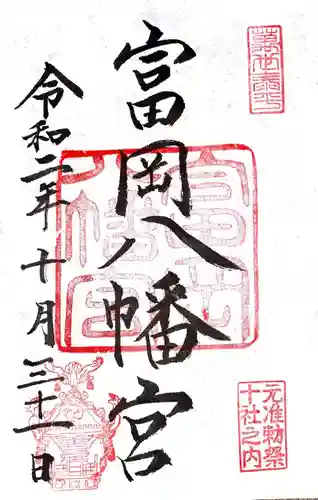 萬世泰平
富岡八幡宮
元准勅祭
十社之内
令和二年十月三十一日